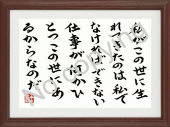 私がこの世に生
れてきたのは私で
なければできない
仕事が何かひ
とつこの世にあ
るからなのだ